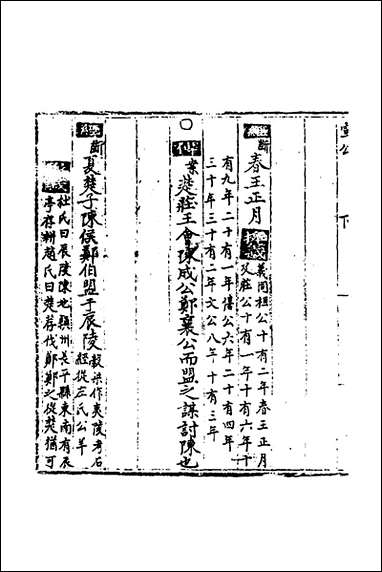 宣公 下
經斷春王正月纂義義同桓公十有二年春王正月
又莊公十有一年十有六年十
有九年二十有一年僖公六年二十有四年
三十年三十有二年文公八年十有三年
傳案楚莊王會陳成公鄭襄公而盟之謀討陳也
經斷夏楚子陳侯鄭伯盟于辰陵穀梁作夷陵考石
經從左氏公羊
杜氏曰辰陵陳地潁州長平縣東南有辰
亭存耕趙氏曰楚荐伐鄭鄭之從楚猶可